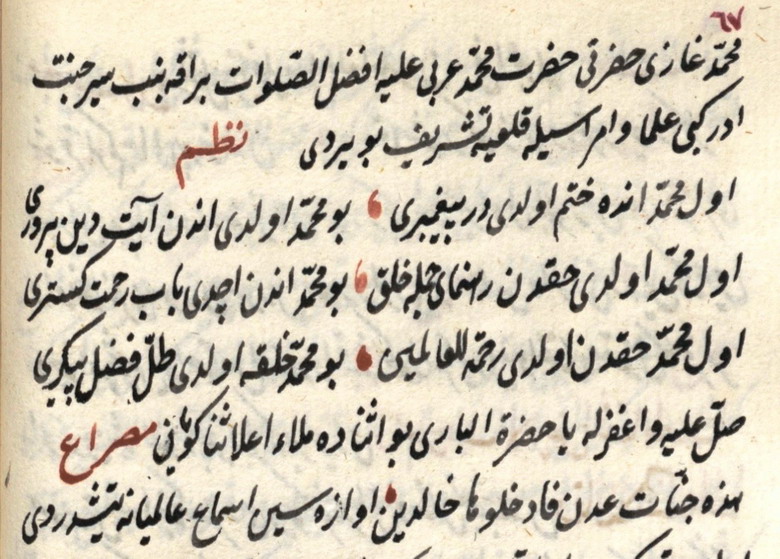 ٦٧
محمّد غازى حضرتى حضرت محمّد عربى عليه افضل الصّلوات براقه بنب سير جنّت
ايدر كبى علما وامرا سيله قلعيه تشريف بويردى نظم
اول محمّد انده ختم اولدى در پيغمبرى بو محمّد اولدى اندن آيت دين پرورى
اول محمّد اولدى حقدن رهنماى جمله خلق بو محمّد اندن اچدى باب رحمت كسترى
اول محمّد حقدن اولدى رحمة للعالمين بو محمّد خلقه اولدى ظلّ فضل پيكرى
صلّ عليه واغفر له يا حضرة البارى بو اثناده ملاء اعلا ثنا كويان مصراع
هذه جنّات عدن فادخلوها خالدين اوازه سين اسماع عالميانه يتشدردى